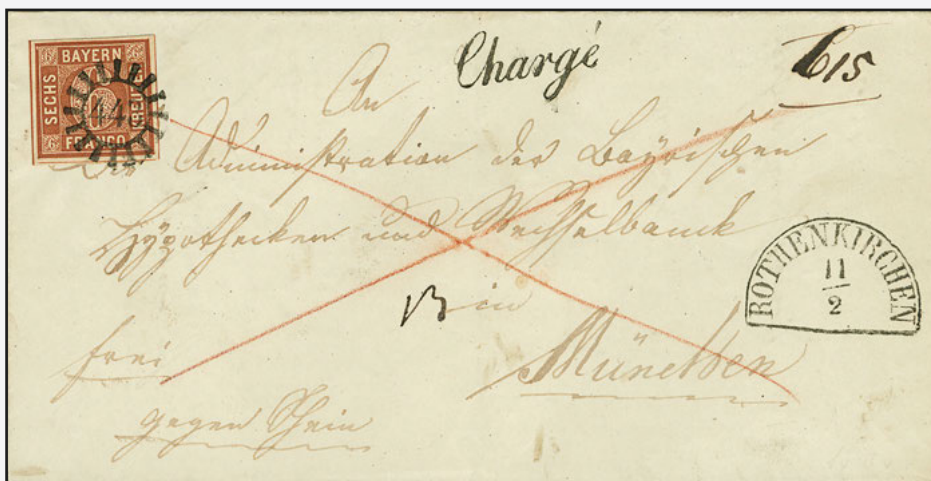 BAYERN
SECHS
KREUZER
FRANCO
6
6
6
Chargé
An
Die Administration der Bayrischen
Hypotheken und Wechselbanck
in
München
frei
gegen Schein
ROTHENKIRCHEN
11
2